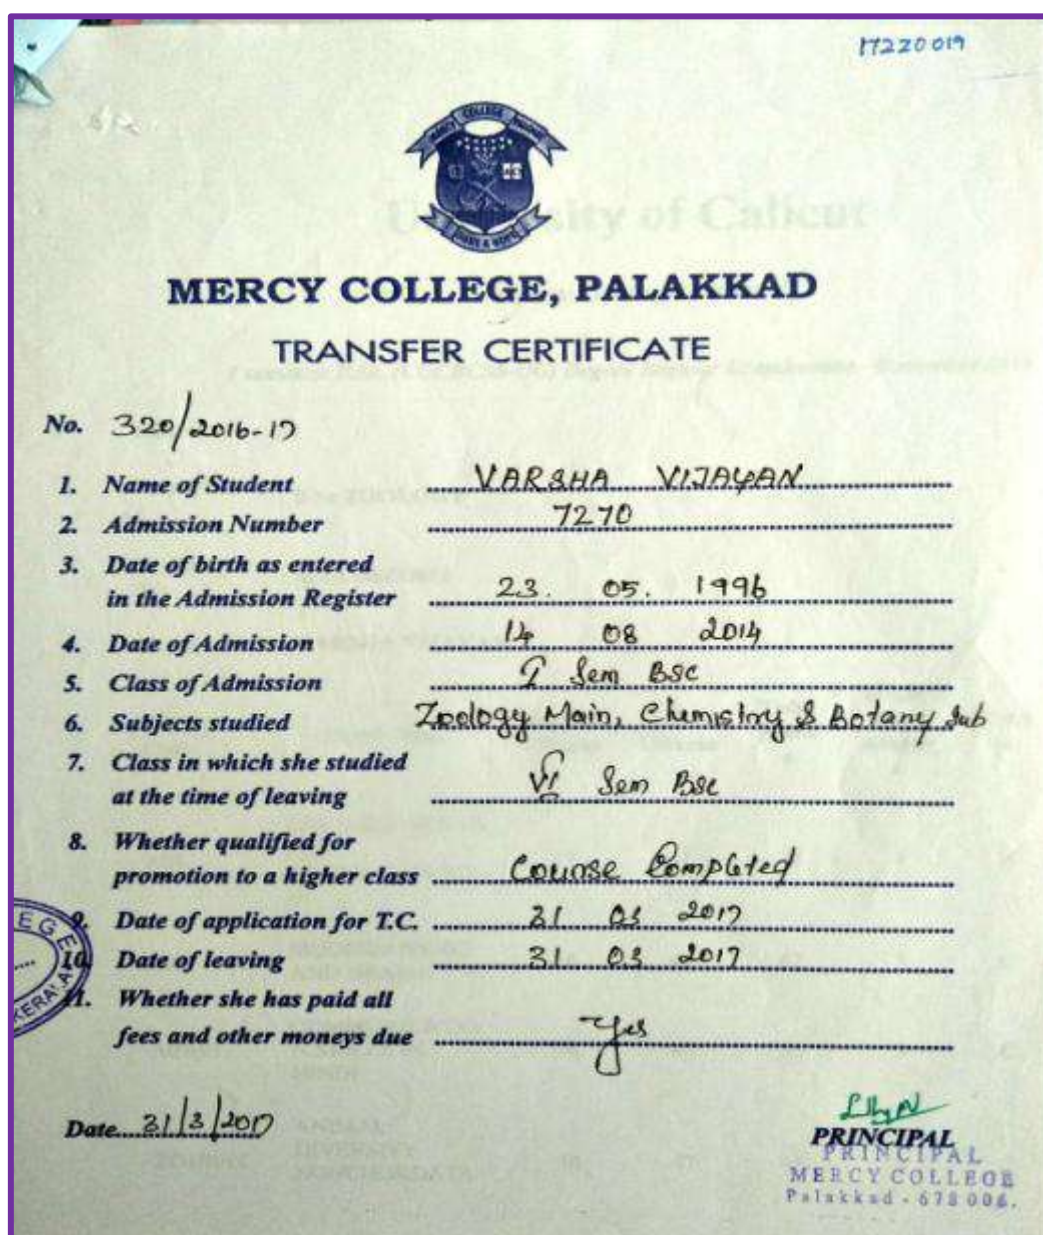 17220019
MERCY COLLEGE
University of Calicut
MERCY COLLEGE, PALAKKAD
TRANSFER CERTIFICATE
No. 320/2016-17
1. Name of Student VARSHA VIJAYAN
2. Admission Number 7270
3. Date of birth as entered
in the Admission Register 23. 05. 1996
4. Date of Admission 14 08 2014
5. Class of Admission I Sem BSC
6. Subjects studied Zoology Main, Chemistry & Botany Sub
7. Class in which she studied
at the time of leaving VI Sem BSc
8. Whether qualified for
promotion to a higher class Course Completed
9. Date of application for T.C. 31 03 2017
10. Date of leaving 31 03 2017
11. Whether she has paid all
fees and other moneys due Yes
EGE
KERALA
Date 31/3/2017
PRINCIPAL
PRINCIPAL
MERCY COLLEGE
Palakkad - 678 006.